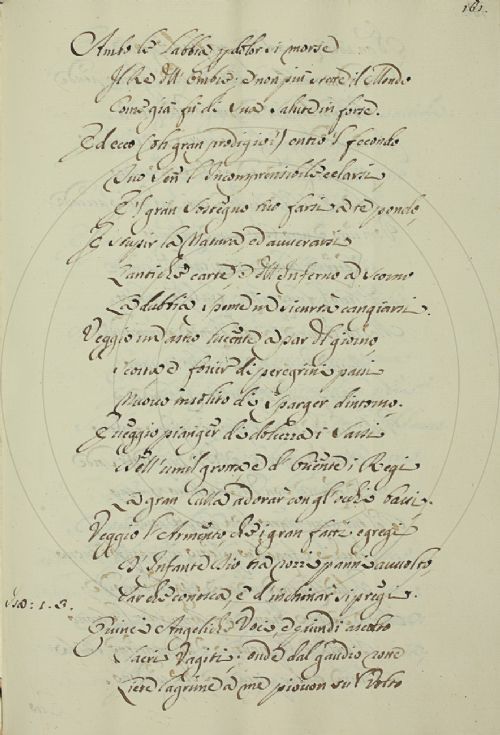 161.
Ambo le labbia p dolor si morse
Il Re dll' ombre, e non più crede il Mondo
Come già fù di Sua Salute in forse.
Ed ecco (oh gran prodigio!) entro 'l fecondo
Suo Sen l' Incomprensibile celarsi,
E 'l gran Sostegno tuo farsi a te pondo,
E stupir la Natura ed avverarsi
L'antiche carte, e dll' Inferno a Scorno
La dubbia speme in Sicurtà cangiarsi.
Veggio un astro lucente a par dl giorno
Scorta e forier di peregrini passi
Nuovo insolito dì Sparger d'intorno.
E veggio pianger di dolcezza i Sassi
Nell' umil grotta e d' Oriente i Regi
La gran Culla adorar con gl' occhi bassi.
Veggio l' Armento che i gran fatti egregi
D' Infante Dio tra rozzi panni avvolto
Par che conosca e d' inchinar si pregi.
Isa: 1. 3.
Quinci Angeliche Voci, e quindi ascolto
Sacri Vagiti: onde dal gaudio
Liete lagrime a me piovon sul Volto